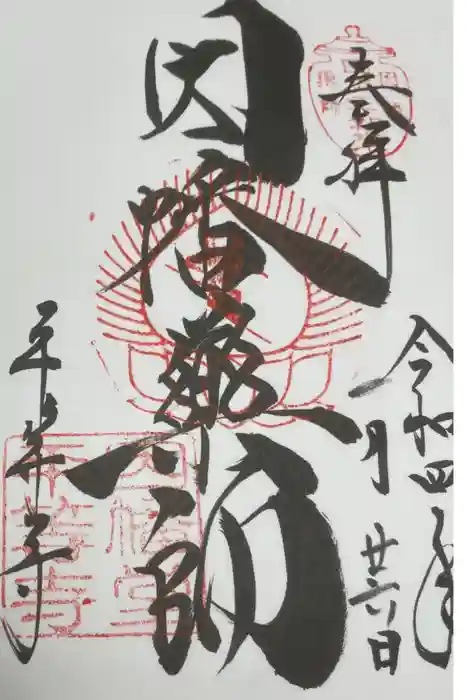 奉拝
令和四年
一月廿六日
因幡薬師
平等寺
因幡堂
平等寺